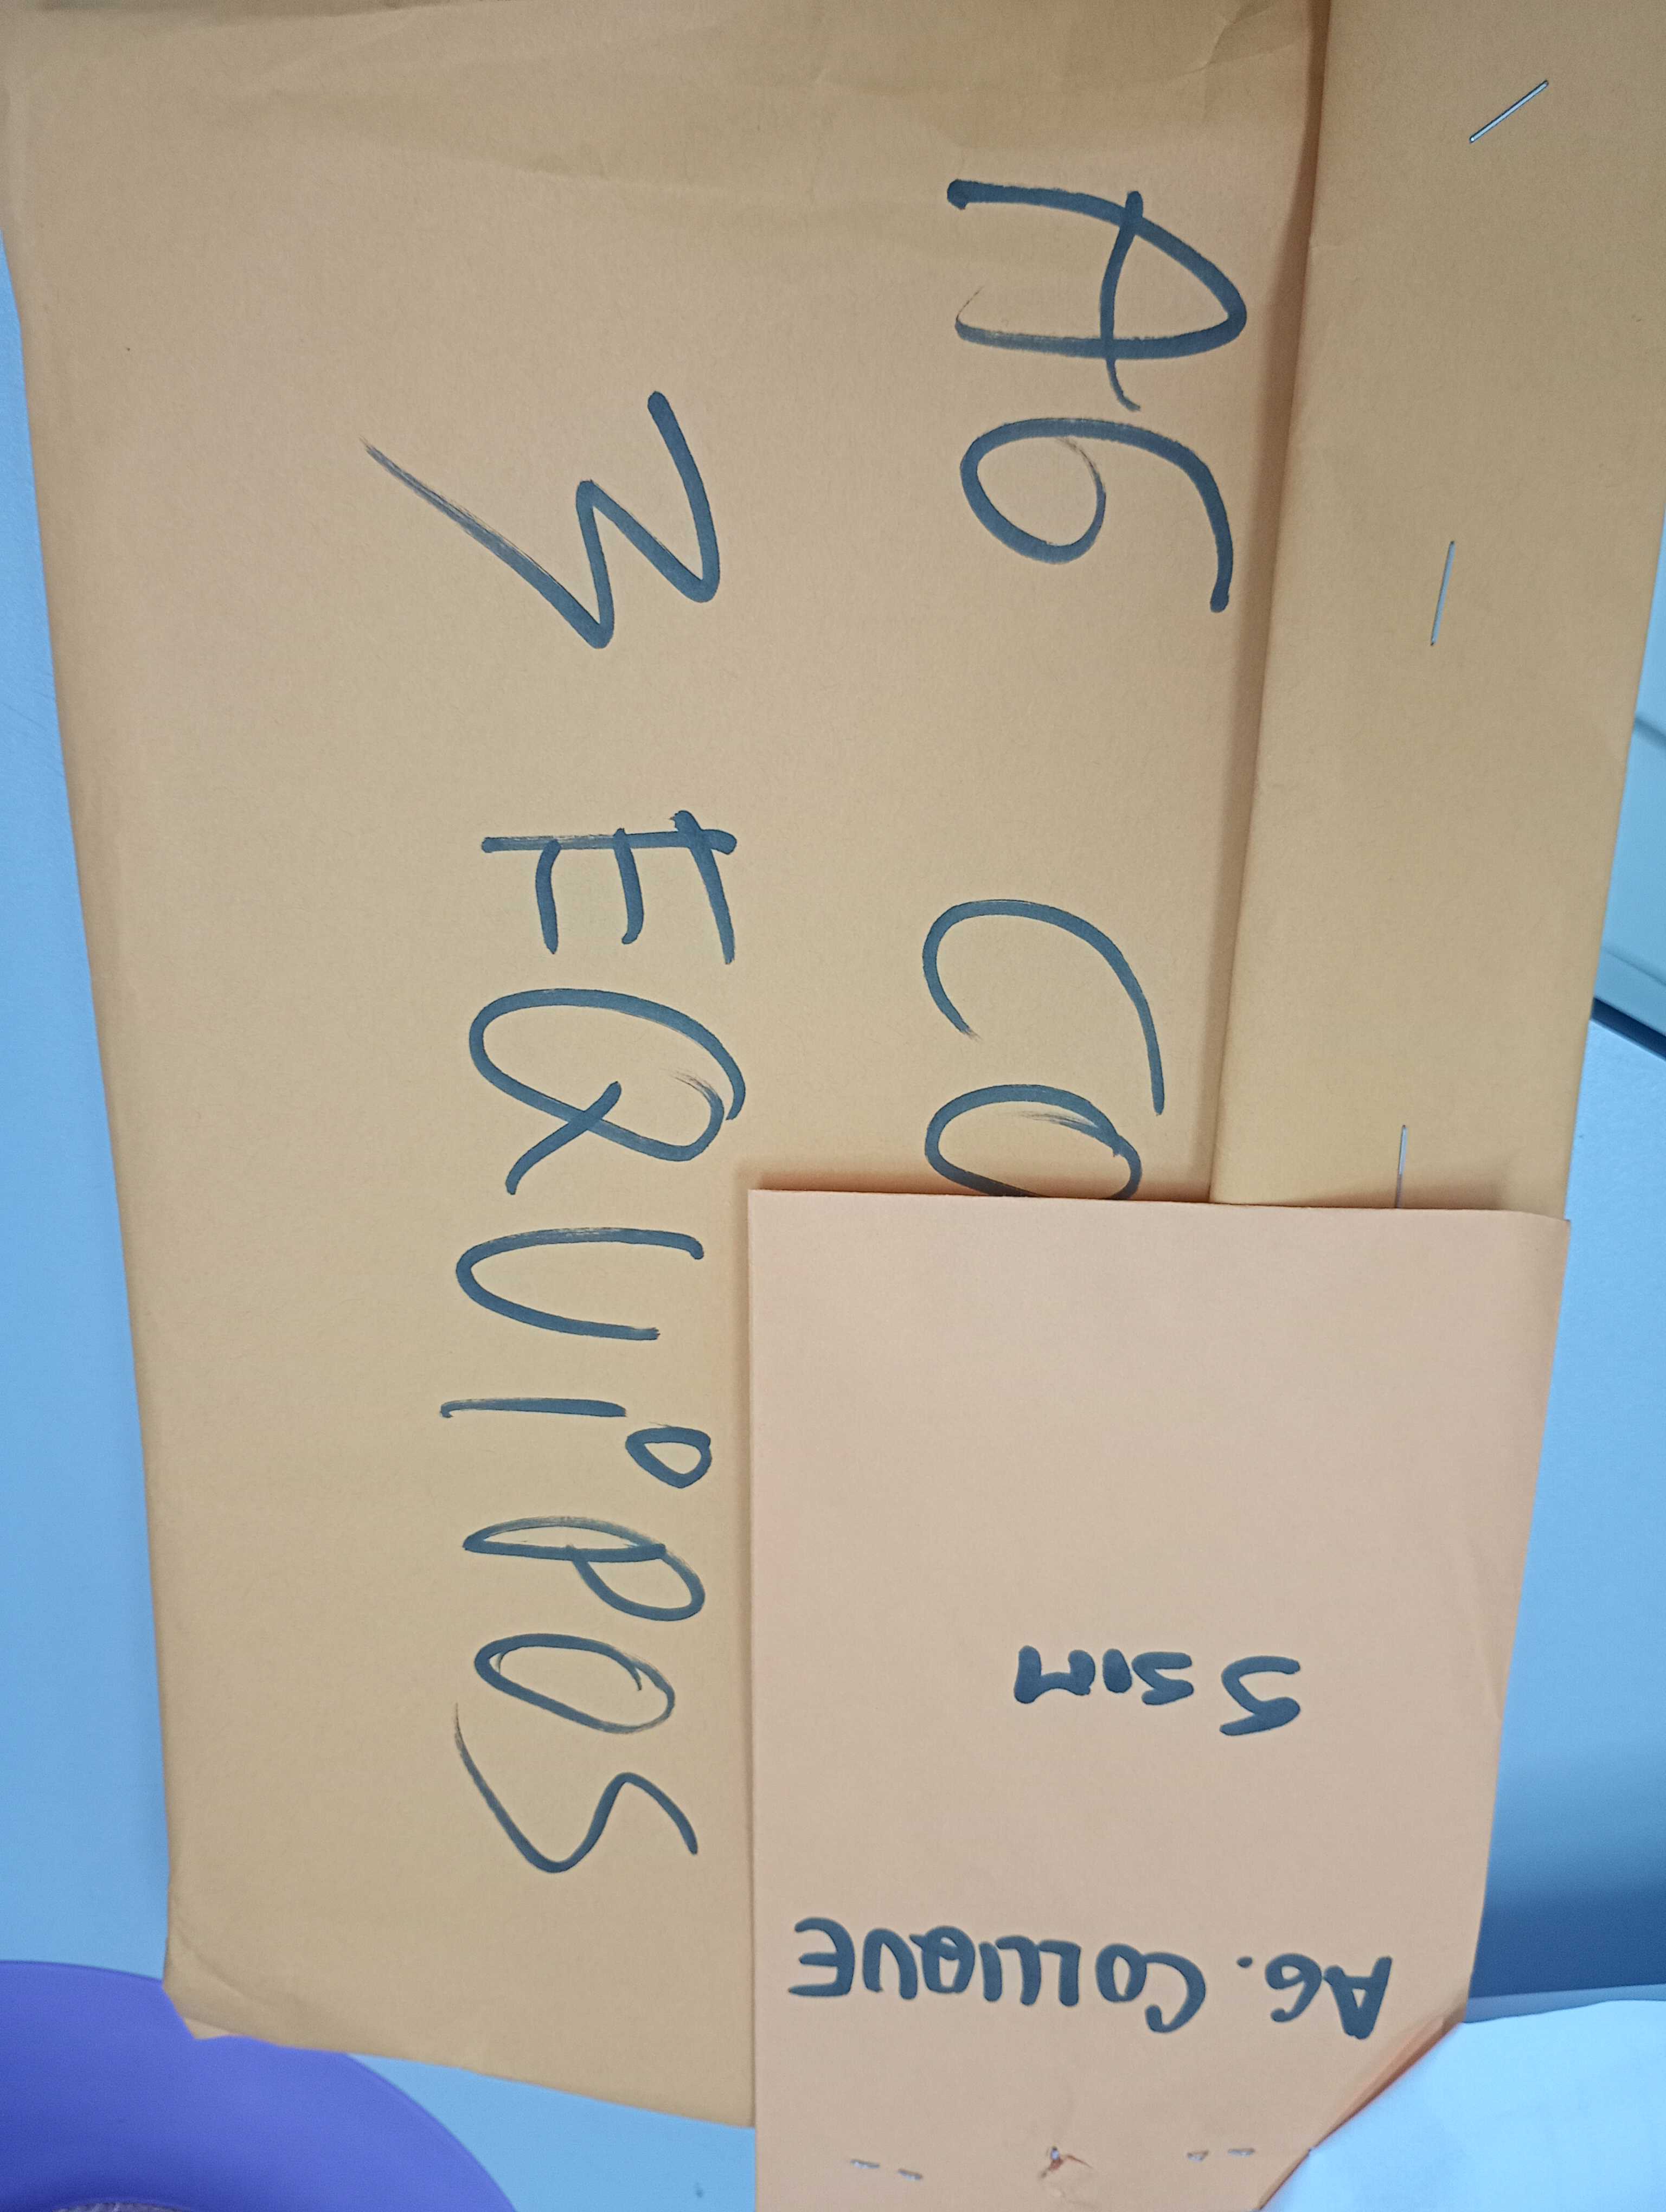 AG CO
3 EQUIPOS
AG. COLLIQUE
5 SIM